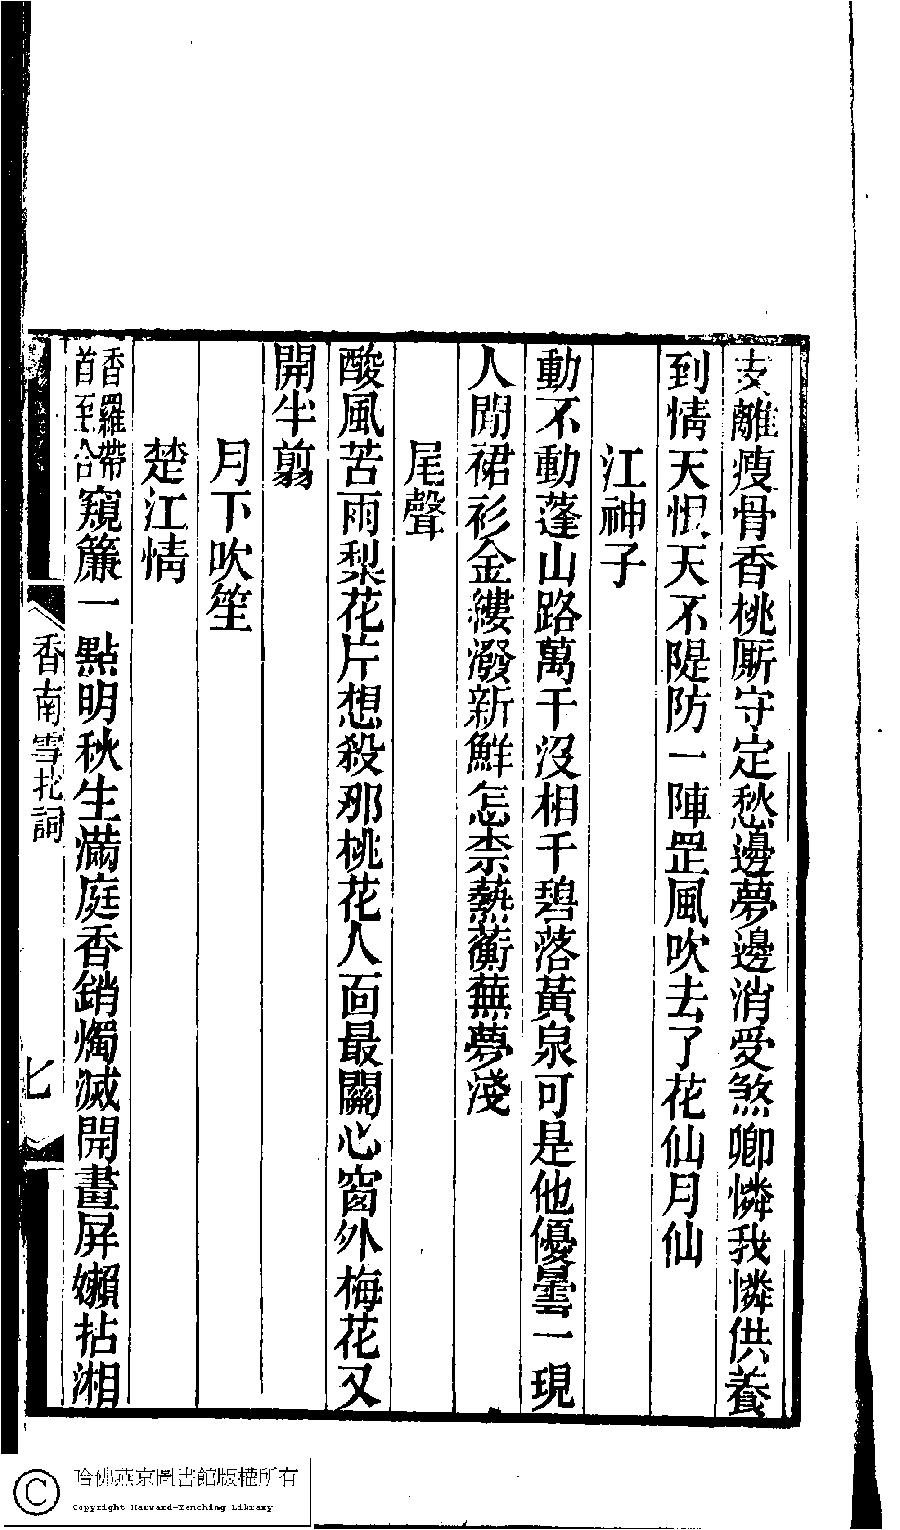 支離瘦骨香桃厮守定愁邊夢邊消受煞卿憐我憐供養
到情天恨天不隄防一陣罡風吹去了花仙月仙
江神子
動不動蓬山路萬千沒相干碧落黃泉可是他優曇一現
人間裙衫金縷潑新鮮怎柰熱蘅蕪夢淺
尾聲
酸風苦雨梨花片想殺那桃花人面最關心窗外梅花又
開半翦
月下吹笙
楚江情
香羅帶
首至合窺簾一點明秋生滿庭香銷燭滅開畫屏嬾拈湘
香南雪北詞
七
哈佛燕京圖書館版權所有
Copyright Harvard-Yenching Library